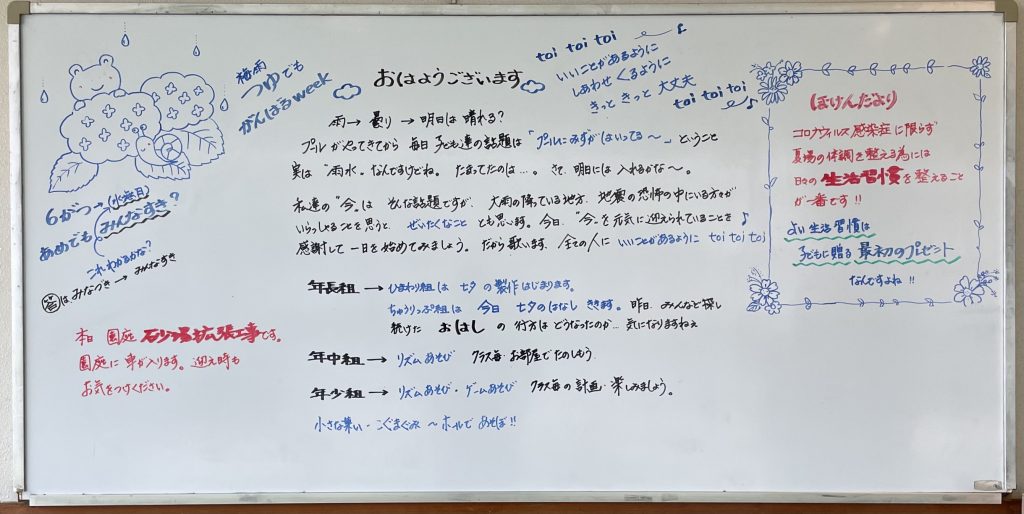 梅雨
つゆでも
がんばるweek
おはようございます
toi toi toi
いいことがあるように
しあわせ くるように
きっと きっと 大丈夫
toi toi toi
雨→ 曇り → 明日は 晴れる?
プールがやってきてから 毎日 子ども達の話題は「プールにみずがはいってる〜」ということ
実は"雨水"なんですけどね。 たまってたのは…。 さて、明日には 入れるかな〜。
私達の"今"は そんな話題ですが、大雨の降っている地方、地震の恐怖の中にいる方々が
いらっしゃることを思うと、ぜいたくなこと とも思います。今日、"今"を元気に迎えられていることを
感謝して 一日を始めてみましょう。だから歌います、全ての人に いいことがあるように toi toi toi
年長組 → ひまわり組は 七夕 の製作 はじまります。
ちゅうりっぷ組は 今日 七夕のはなし ききます。昨日、みんなと探し
続けた おはし の 行方は どうなったのか… 気になりますねぇ
年中組 → リズムあそび クラス毎・お部屋でたのしもう
年少組 → リズムあそび・ゲームあそび クラス毎の計画・楽しみましょう。
小さな集い・こぐまぐみ 〜ホールで あそぼ!!
6がつ→(水無月)
あめでも みんなすき?
これ わかるかな?
答は みなづき → みんなすき
本日 園庭 石けり場拡張工事です。
園庭に 車が入ります。迎え時も
お気をつけください。
ほけんだより
コロナウィルス感染症に限らず
夏場の体調を整える為には
日々の 生活習慣を整えること
が一番です!!
よい生活習慣は
子どもに贈る 最初のプレゼント
なんですよね!!